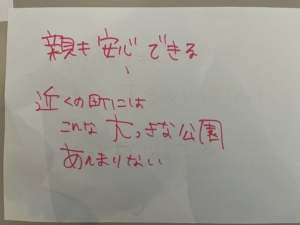 親も安心できる
、
近くの町には
こんな大っきな公園
あんまりない